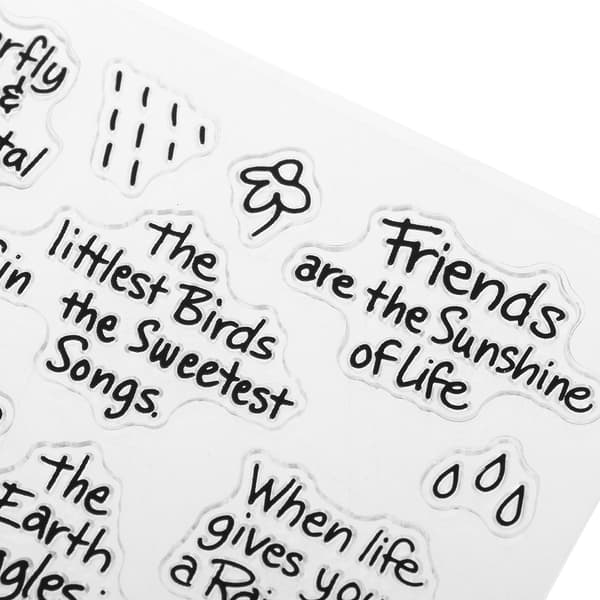 &
The
littlest Birds
the Sweetest
Songs.
Friends
are the Sunshine
of Life
The
Earth
When life
gives you
a